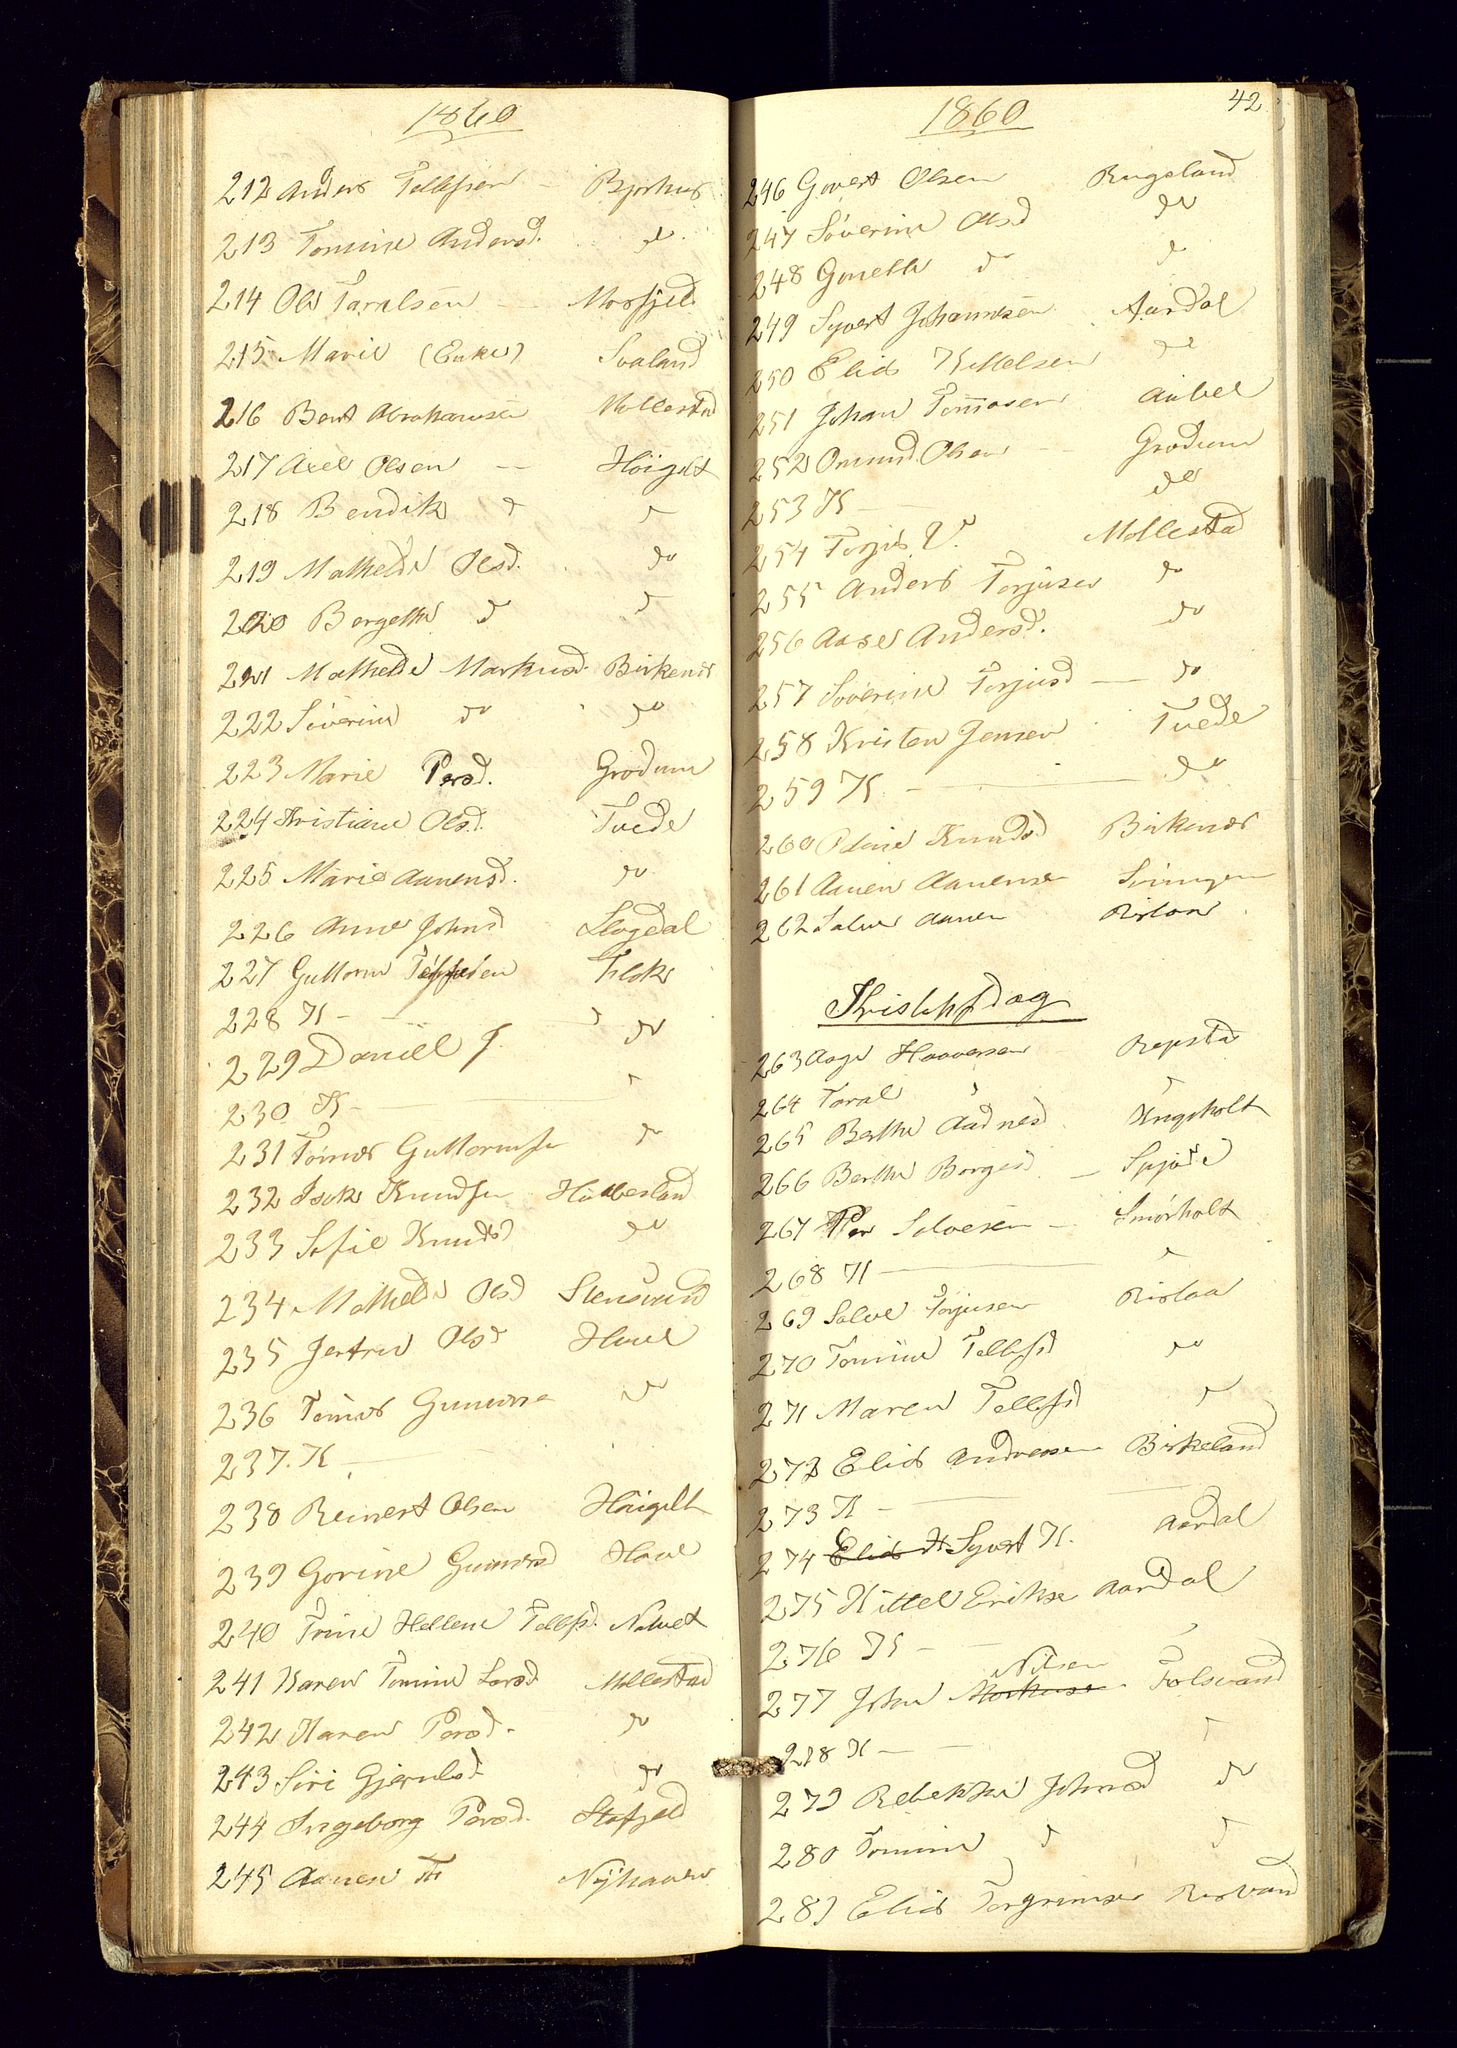 1860
212 Anders Tellefsen - Bjorhus
213 Tomine Andersd. do
214 Ole Taralsen - Mosfjeld
215 Marie (Enke) Svaland
216 Bent Abrahamsen Mollestad
217 Axel Olsen - Höigilt
218 Bendik d d
219 Mathelde Olsd. do
220 Bergethe d d
221 Mathelde Markusd. Birkenes
222 Söverine do do
223 Marie Persd. Grodum
224 Kristiane Olsd. Tvede
225 Marie Aanensd. do
226 Anne Johnsd Slogdal
227 Guttorm Tellefsen Flak
228 K - d
229 Daniel J. do
230 K - d
231 Tomas Guttormsen do
232 Isak Knudsen Hübbestad
233 Sofie Knudsd do
234 Mathelde Olsd Stensvand
235 Jertru Olsd Have
236 Tomas Gunnarsen do
237. K -
238 Reinert Olsen Höigilt
239 Gorine Gunnarsd Have
240 Trine Hellene Tellefsd. Natvet
241 Karen Tomine Larsd Mollestad
242 Karen Persd. do
243 Siri Gjerulsd do
244 Ingeborg Persd. Stafjeld
245 Aanen Th Nÿhaven
1860 42
246 Govert Olsen Rugeland
247 Söverine Olsd do
248 Gunelle do d
249 Syvert Johannesen Aardal
250 Elias Kittelsen do
251 Johan Tomasen Aabel
252 Omund Olsen - Grodum
253 K - do
254 Torjus Mollestad
255 Anders Torjusen do
256 Aase Andersd. do
257 Söverine Torjusd - do
258 Kristen Jensen Tvede
259 K - do
260 Oline Knudsd Birkenes
261 Aanen Aanensen
262 Salve Aanen Rislaa
263 Aage Haaversen Repstad
264 Taral d d
265 Berthe Aadnesd Engeholt
266 Berthe Borgesd - Spjöde
267 Per Salvesen - Smörholt
268 K - d
269 Salve Torjusen Rislaa
270 Tomine Tellefsd do
271 Maren Tellefsd d
272 Elias Andreasen Birkeland
273 K -
274 Elias K Syvert K. Aardal
275 Kittel Eriksen Aardal
276 K - d
277 John Markusen Nilsen Tolsvand
278 K - d
279 Rebekka Johnsd do
280 Tomine d d
281 Elias Torgrimsen Risvand